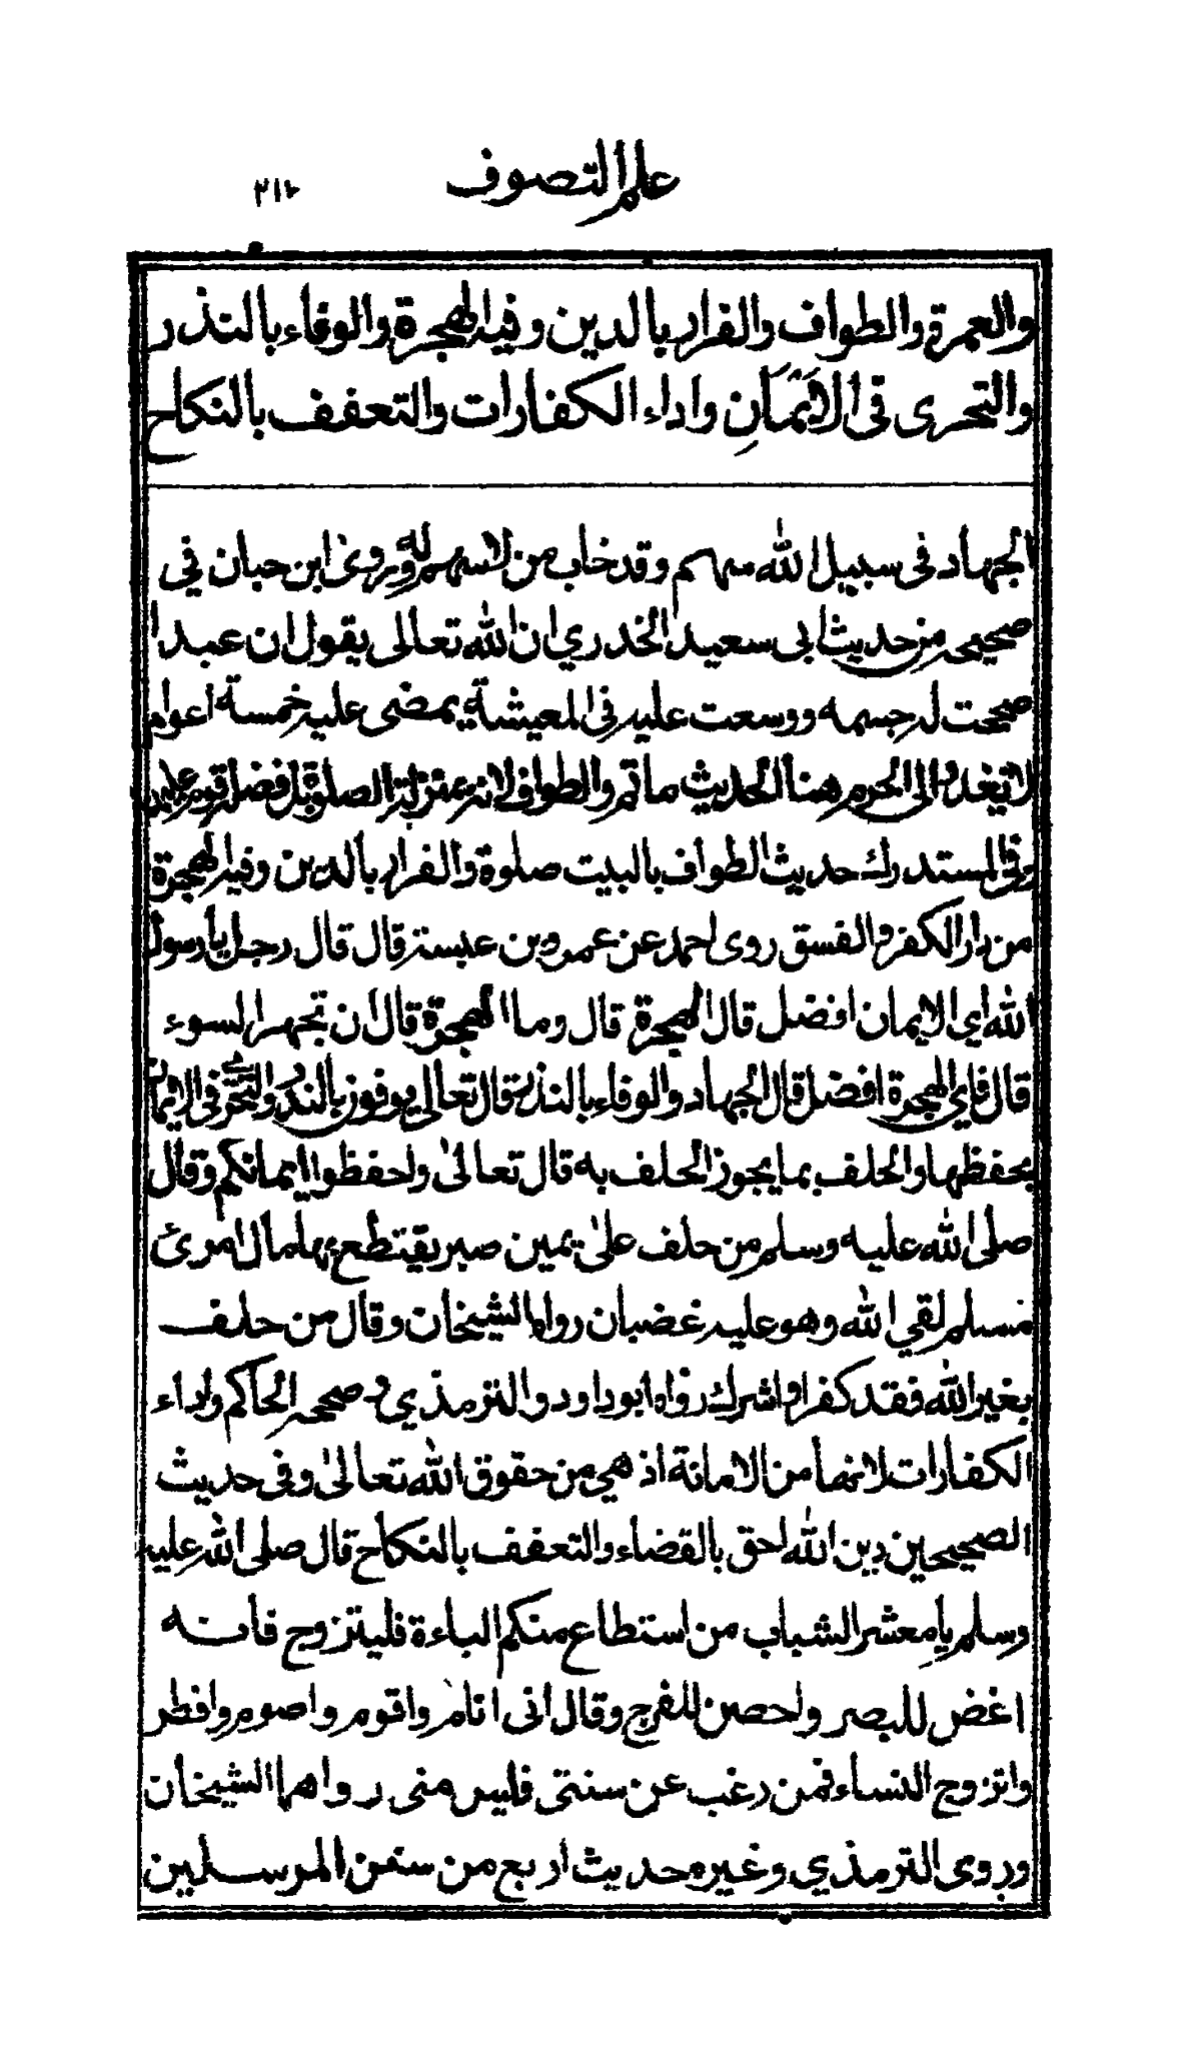 علم التصوف
والعمرة والطواف والفرار بالدين وفيه الهجرة والوفاء بالنذر
والتحرى فى الايمَانِ واداء الكفارات والتعفف بالنكاح
الجهاد فى سبيل الله سهم وقد خاب من لا سهم له وروى ابن حبان في
صحيحه من حديث ابى سعيد الخدري ان الله تعالى يقول ان عبدا
صححت له جسمه ووسعت عليه فى المعيشة يمضى عليه خمسة اعوام
لا يغدو الى لمحروم هذا الحديث ما تم والطواف لانه بمنزلة الصلوة بل افضل قوم عليه
وفى المستدرك حديث الطواف بالبيت صلوة والفرار بالدين وفيه الهجرة
من دار الكفر والفسق روى احمد عن عمرو بن عبسة قال قال رجل يا رسول
الله اي الايمان افضل قال الهجرة قال وما الهجرة قال ان تهجر السوء
قال فاي الهجرة افضل قال الجهاد والوفاء بالنذر قال تعالى يوفون بالنذر والتحري فى الايمان
بحفظها والحلف بما يجوز الحلف به قال تعالىٰ واحفظوا ايمانكم وقال
صلى الله عليه وسلم من حلف علىٰ يمين صبر يقتطع بها مال امرئ
مسلم لقي الله وهو عليه غضبان رواه الشيخان وقال من حلف
بغير الله فقد كفر او اشرك رواه ابو داود والترمذي وصححه الحاكم واداء
الكفارات لانها من الامانة اذ هي من حقوق الله تعالىٰ وفى حديث
الصحيحين دين الله احق بالقضاء والتعفف بالنكاح قال صلى الله عليه
وسلم يا معشر الشباب من استطاع منكم الباءة فليتزوج فانه
اغض للبصر واحصن للفرج وقال انى انام واقوم واصوم وافطر
واتزوج النساء فمن رغب عن سنتى فليس منى رواهما الشيخان
وروى الترمذي وغيره حديث اربع من سنن المرسلين